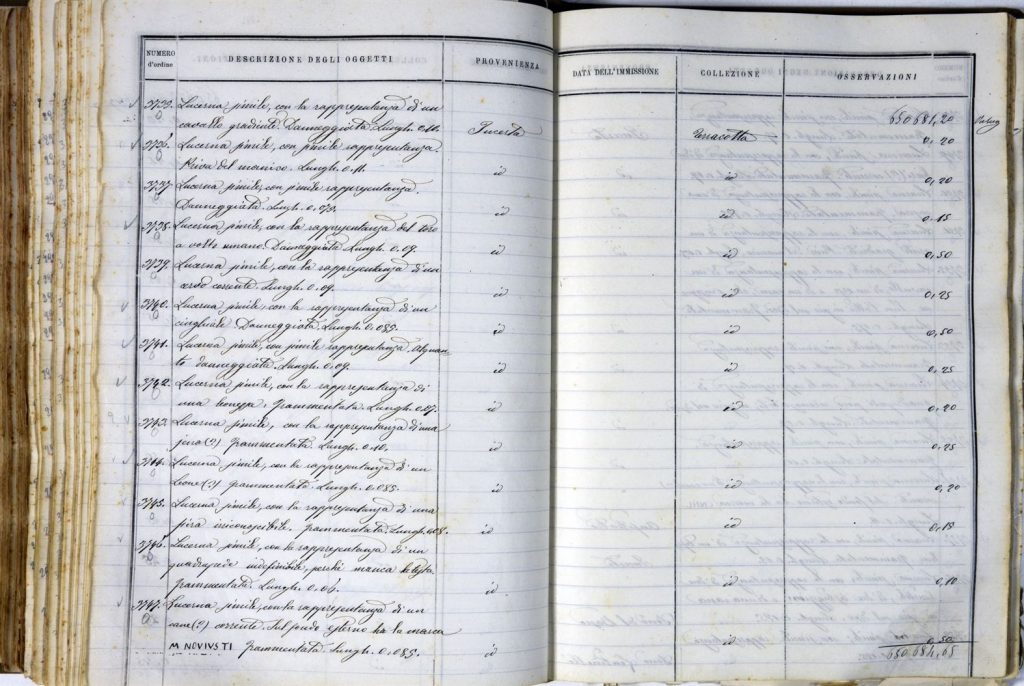 NUMERO d'ordine
DESCRIZIONE DEGLI OGGETTI
PROVENIENZA
DATA DELL'IMMISSIONE
COLLEZIONE
OSSERVAZIONI
650684,20
3735. Lucerna simile, con la rappresentanza di un
cavallo gradiente. Danneggiata. Lungh. Incerta Terracotta 0,20
3736. Lucerna simile, con simile rappresentanza.
Priva del manico. Lungh. 0,11. id id 0,20
3737. Lucerna simile, con simile rappresentanza.
Danneggiata. Lungh. 0,075. id id 0,15
3738. Lucerna simile, con la rappresentanza del toro
a volto umano. Danneggiata. Lungh. 0,09. id id 0,50
3739. Lucerna simile, con la rappresentanza di un
corrente. Lungh. 0,09. id id 0,25
3740. Lucerna simile, con la rappresentanza di un
cinghiale. Danneggiata. Lungh. 0,085. id id 0,50
3741. Lucerna simile, con simile rappresentanza. Alquan-
to danneggiata. Lungh. 0,09. id id 0,25
3742. Lucerna simile, con la rappresentanza di
una leonessa. Frammentata. Lungh. id id 0,20
3743. Lucerna simile, con la rappresentanza di una
jena (?) frammentata. Lungh. 0,10. id id 0,25
3744. Lucerna simile, con la rappresentanza di un
leone (?) frammentata. Lungh. 0,085. id id 0,20
3745. Lucerna simile, con la rappresentanza di una
fiera irriconoscibile. frammentata. Lungh. 0,08. id id 0,15
3746. Lucerna simile, con la rappresentanza di un
quadrupede indefinibile, perchè manca la testa.
Frammentata. Lungh. id id 0,10
3747. Lucerna simile, con la rappresentanza di un
cane (?) corrente. Sul fondo esterno ha la marca
M NOVIUSTI Frammentata. Lungh. 0,085. id id 0,50